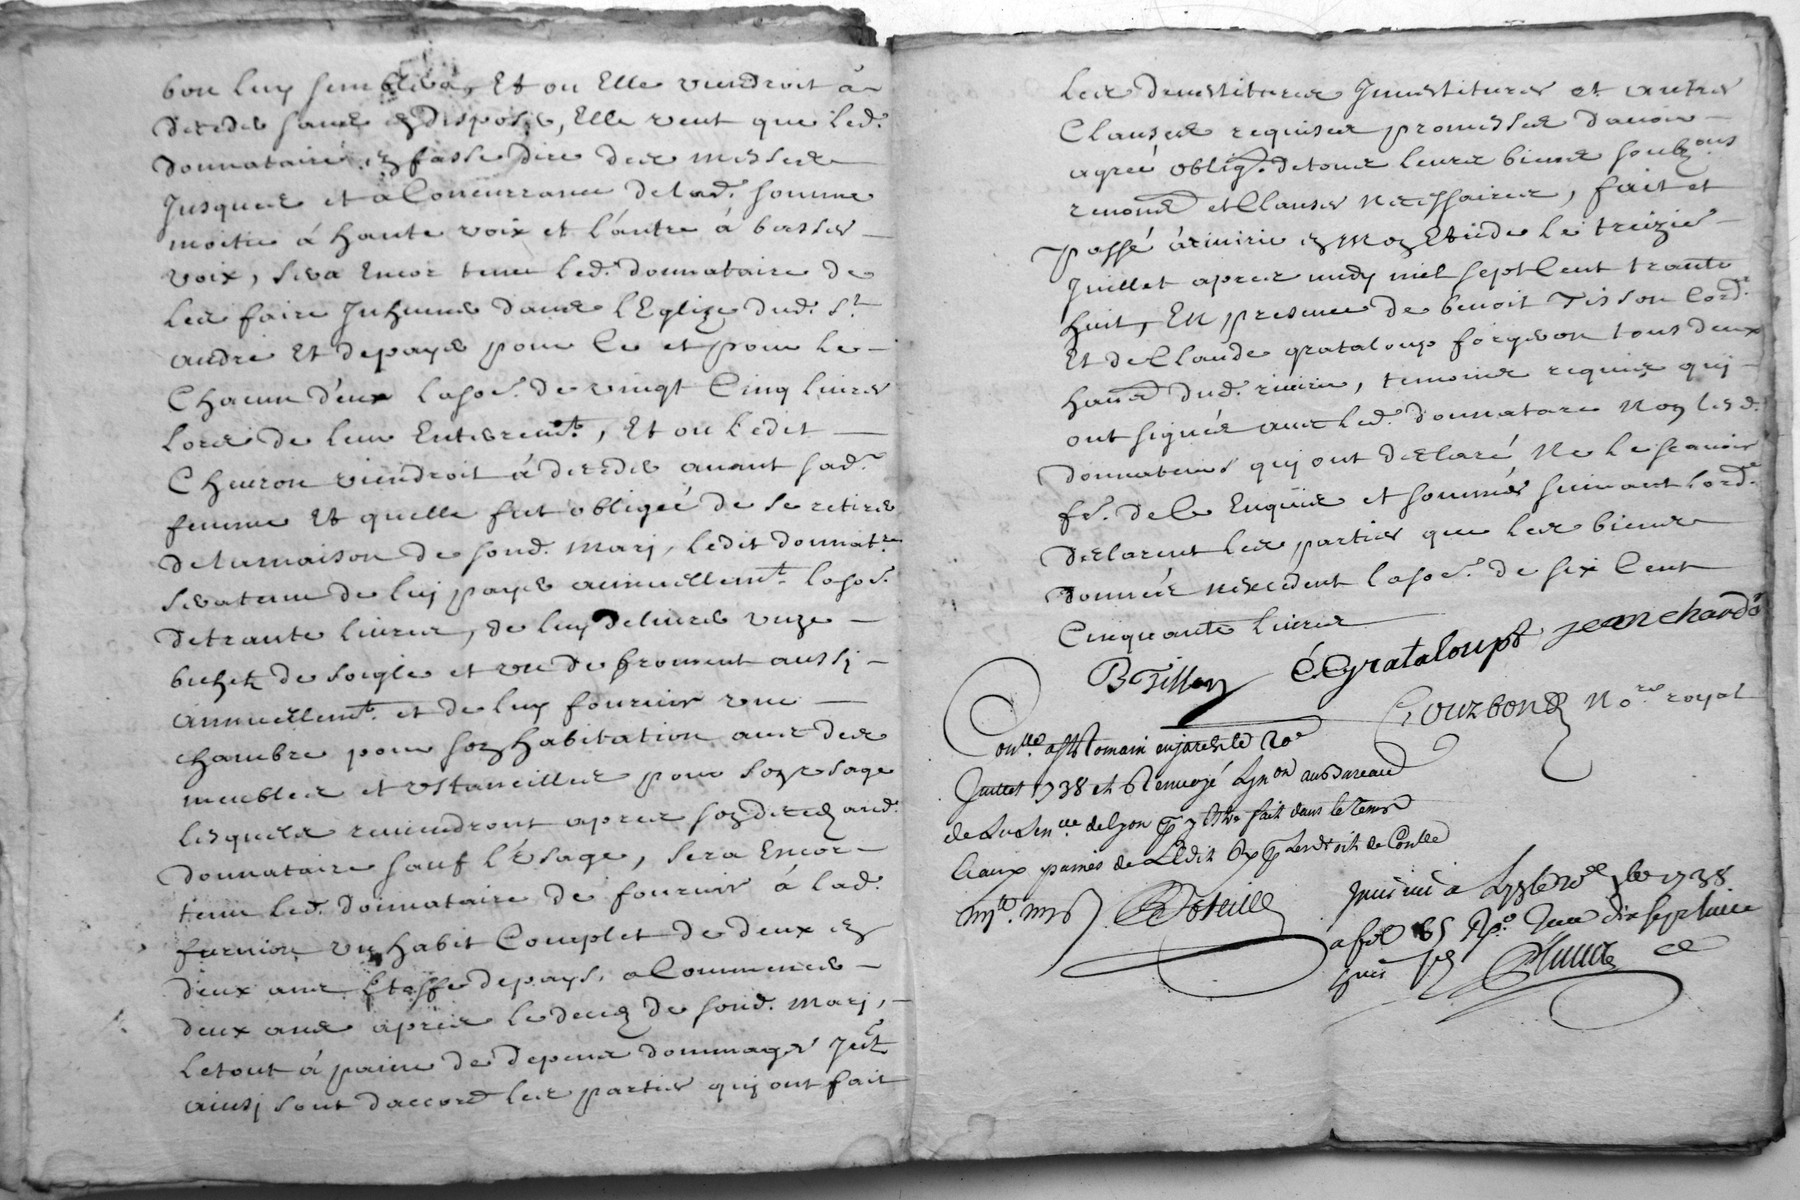 bon luy semblera, Et ou Elle viendroit a
deceder sans en disposer, Elle veut que led.
donnataire en fasse dire des messes
Jusques et a Concurrance de lad. somme
moitie á haute voix et l'autre á basses
voix, sera Encor tenu led. donnataire de
les faire Inhumer dans l'Eglize dud. St
andré Et de payer pour Ce et pour le
Chacun d'eux la so.e de vingt Cinq livres
lors de leur Enterremt., Et ou ledit
Cheuron viendroit á deceder avant sad.
femme Et quelle fut obligeé de se retirer
de la maison de sond. Mari, ledit donnatre
sera tenu de luj payer annuellemt. la so.e
de trante livres, de luy deliurer unze
bichetz de soigle et un de froment aussj
annuellemt. et de luy fournir une
chambre pour son habitation avec des
meubles et ustancilles pour son usage
lesquels reviendront apres son deces aud.
donnataire sauf l'Esage, sera Encor
tenu led. donnataire de fournir á lad.
furnion un habit Complet de deux en
deux ans Etoffe de pays, a Commencer
deux ans apres le deces de sond. Mary,
le tout á paine de depens dommages Jntz
ainsj sont d'accord les parties quj ont fait
les deuestitures Jnuestitures et autres
Clauses requises promesses d'auoir
agreé oblig.on de tous leurs biens soubz ons
renond et Clauses Necessaires, fait et
passé á riuirie en Mon Etude le treizie
Juillet apres midy mil sept Cent trante
huit, En presence de benoit Tisson Cord.r
Et de Claude grataloup forgeron tous deux
hand dud. riuirie, temoins requis quj
ont signés avec led. donnatare Non lesd.
donnateurs quj ont declaré Ne le scavoir
fe. de Ce Enquis et sommés suiuant lord.e
declarent les parties que les biens
donnés nexcedent la so.e de six Cent
Cinquante livres
B Tisson CGrataloupt jean chardō
Gouzbond No.re royal
Con.lle a St Romain en jarest le 20e
Juillet 1738 et Renvoyé Lynon au Bureau
de Lyon fait dans le Tems
Ceaux paines de L'Edit
Boteille
Insinué a Lyon le 1738
a fol 85 Ro. Reçu dix sept livres